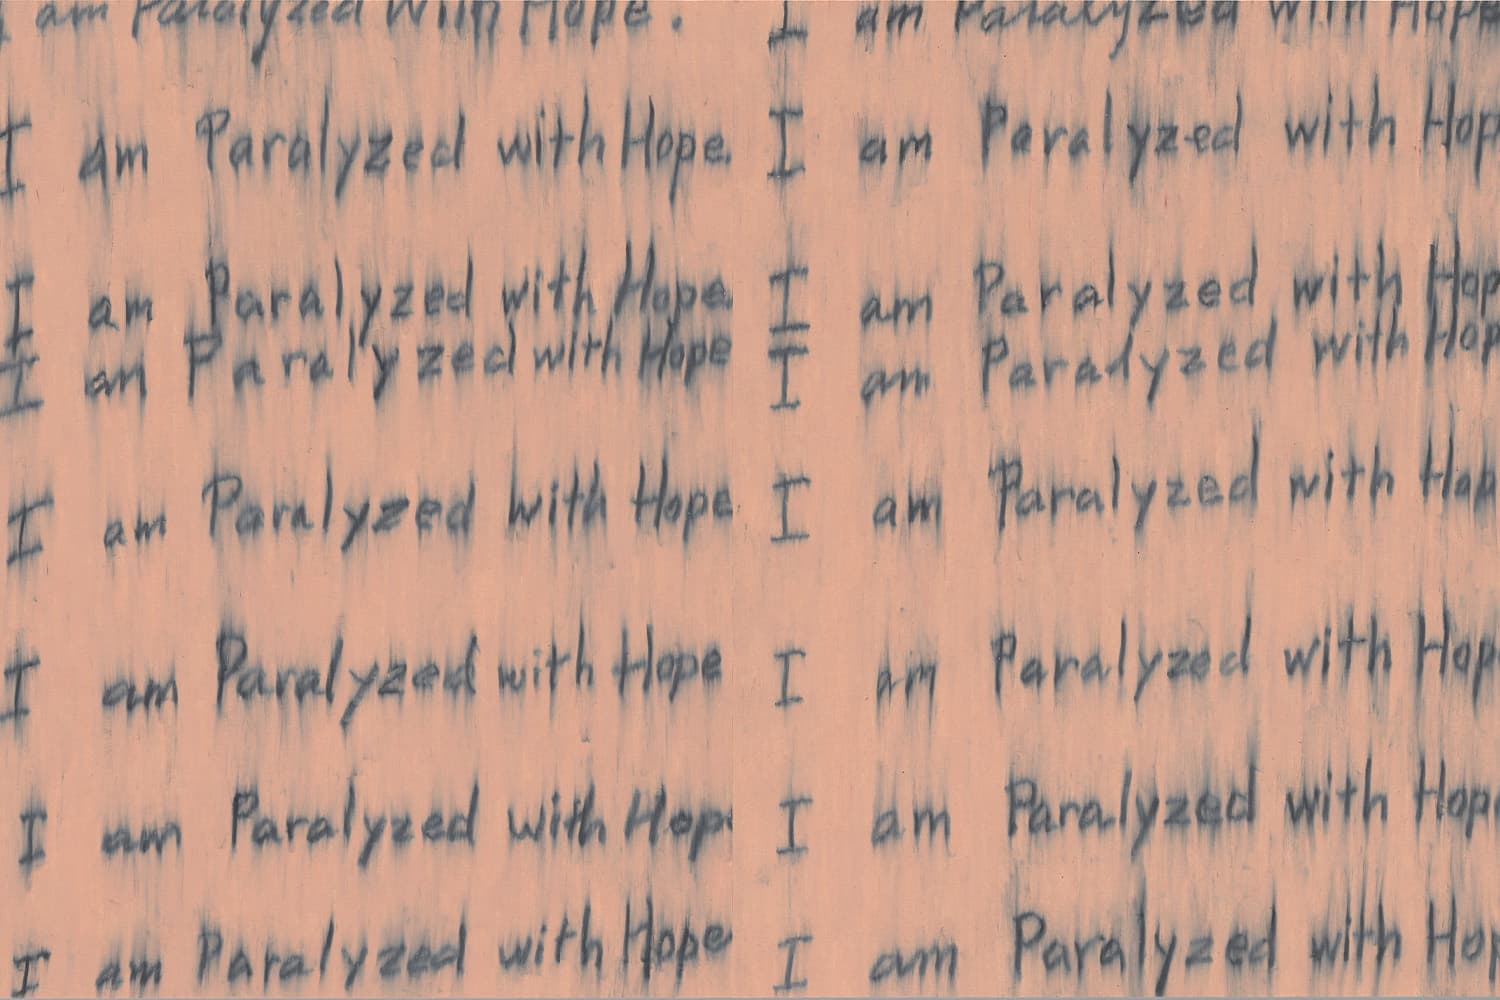 I am Paralyzed with Hope.
I am Paralyzed with Hope.
I am Paralyzed with Hope
I am Paralyzed with Hope
I am Paralyzed with Hope
I am Paralyzed with Hope
I am Paralyzed with Hop
I am Paralyzed with Hope
I am Paralyzed with Hope
I am Paralyzed with Hop
I am Paralyzed with Hop
I am Paralyzed with Hop
I am Paralyzed with Hop
I am Paralyzed with Hop
I am Paralyzed with Hop
I am Paralyzed with Hop